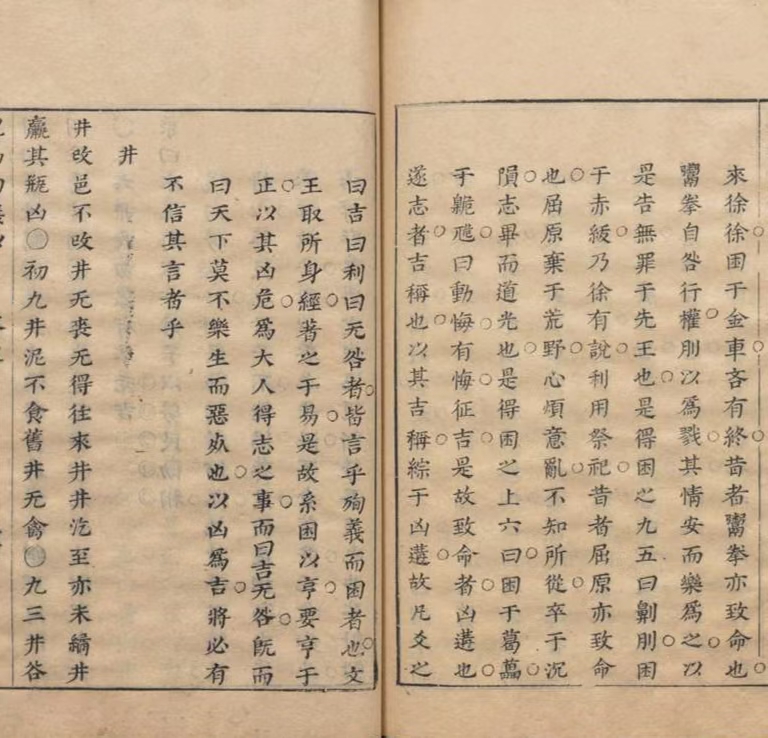 來徐徐困于金車吝有終昔者鬻拳亦致命也
鬻拳自咎行權刖以爲戮其情安而樂爲之以
是告無罪于先王也是得困之九五曰劓刖困
于赤紱乃徐有說利用祭祀昔者屈原亦致命
也屈原棄于荒野心煩意亂不知所從卒于沉
隕志畢而道光也是得困之上六曰困于葛藟
于臲卼曰動悔有悔征吉是故致命者凶遘也
遂志者吉稱也以其吉稱綜于凶遘故凡爻之
曰吉曰利曰无咎者皆言乎殉義而困者也文
王取所身經著之于易是故系困以亨要亨于
正以其凶危爲大人得志之事而曰吉无咎旣而
曰天下莫不樂生而惡死也以凶爲吉將必有
不信其言者乎
井
井改邑不改井无喪无得往來井井汔至亦未繘井
羸其瓶凶○初九井泥不食舊井无禽○九三井谷